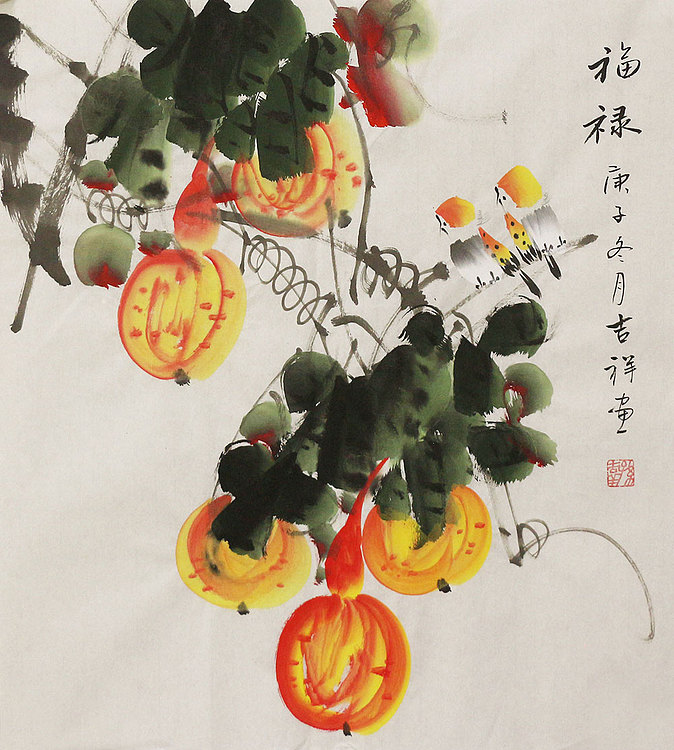 福禄 庚子冬月吉祥畫